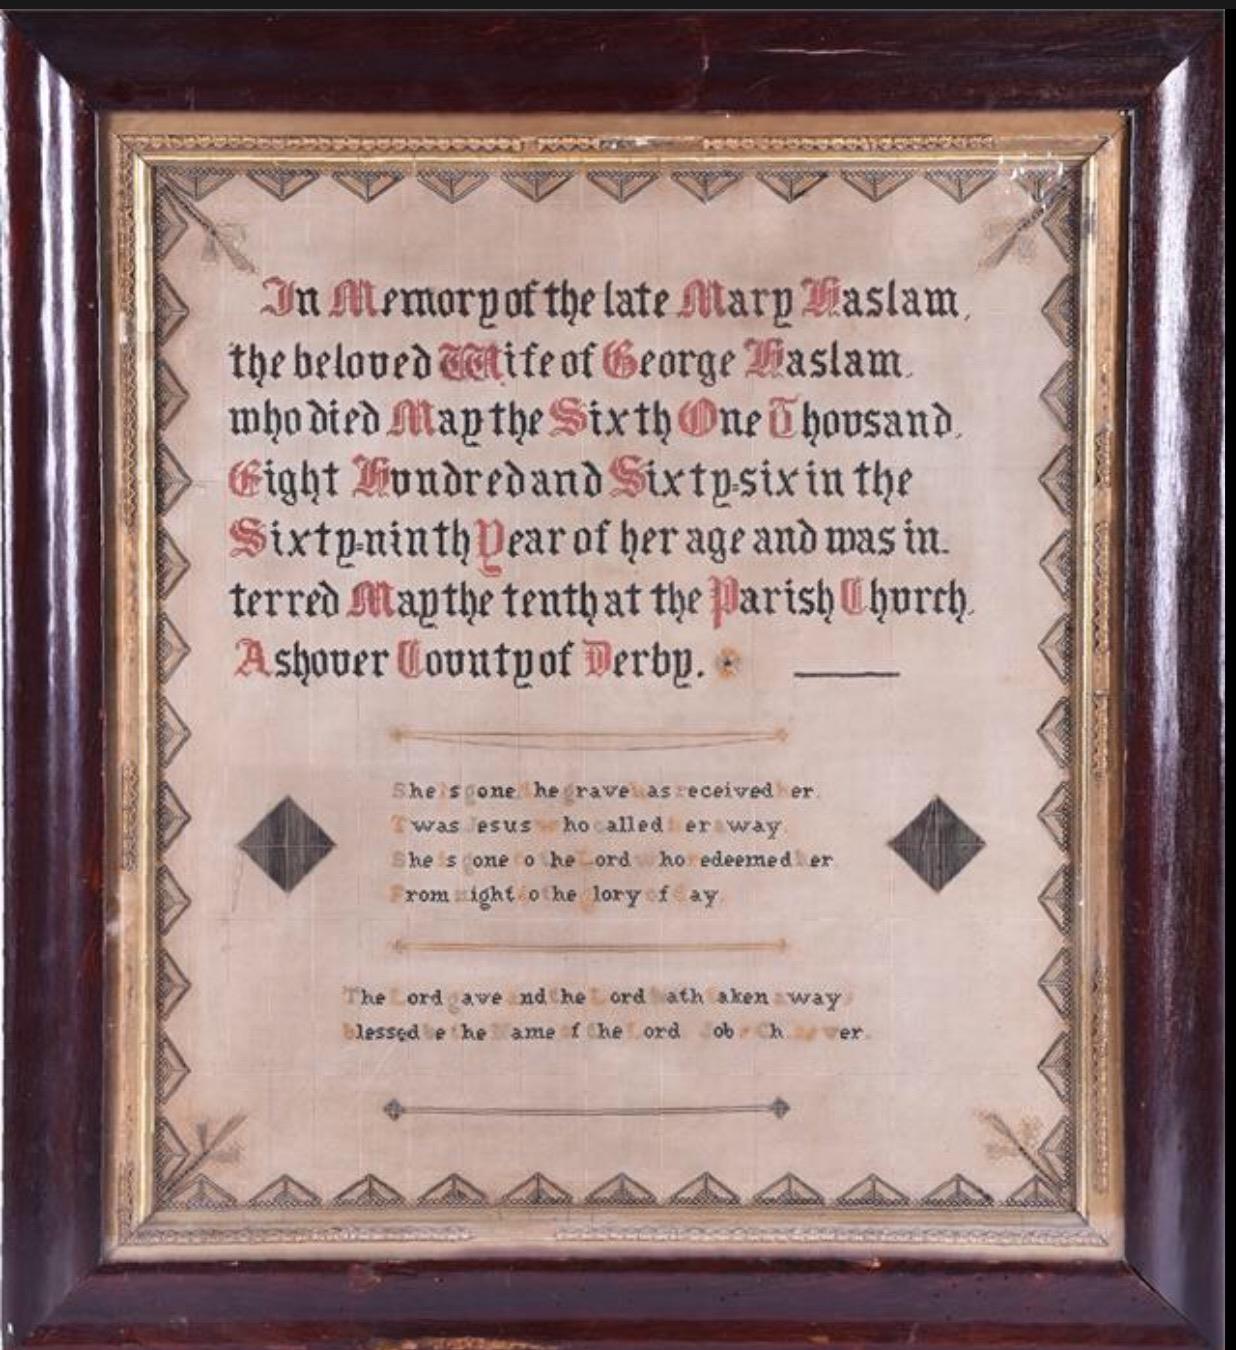 In Memory of the late Mary Haslam,
the beloved Wife of George Haslam.
who died May the Sixth One Thousand,
Eight Hundred and Sixty=six in the
Sixty=ninth Year of her age and was in.
terred May the tenth at the Parish Church,
Ashover County of Derby.
She is gone the grave has received her.
Twas Jesus who called her away
She is gone to the Lord who redeemed her
From night to the glory of day.
The Lord gave and the Lord hath taken away
blessed be the Name of the Lord Job Ch. ver.